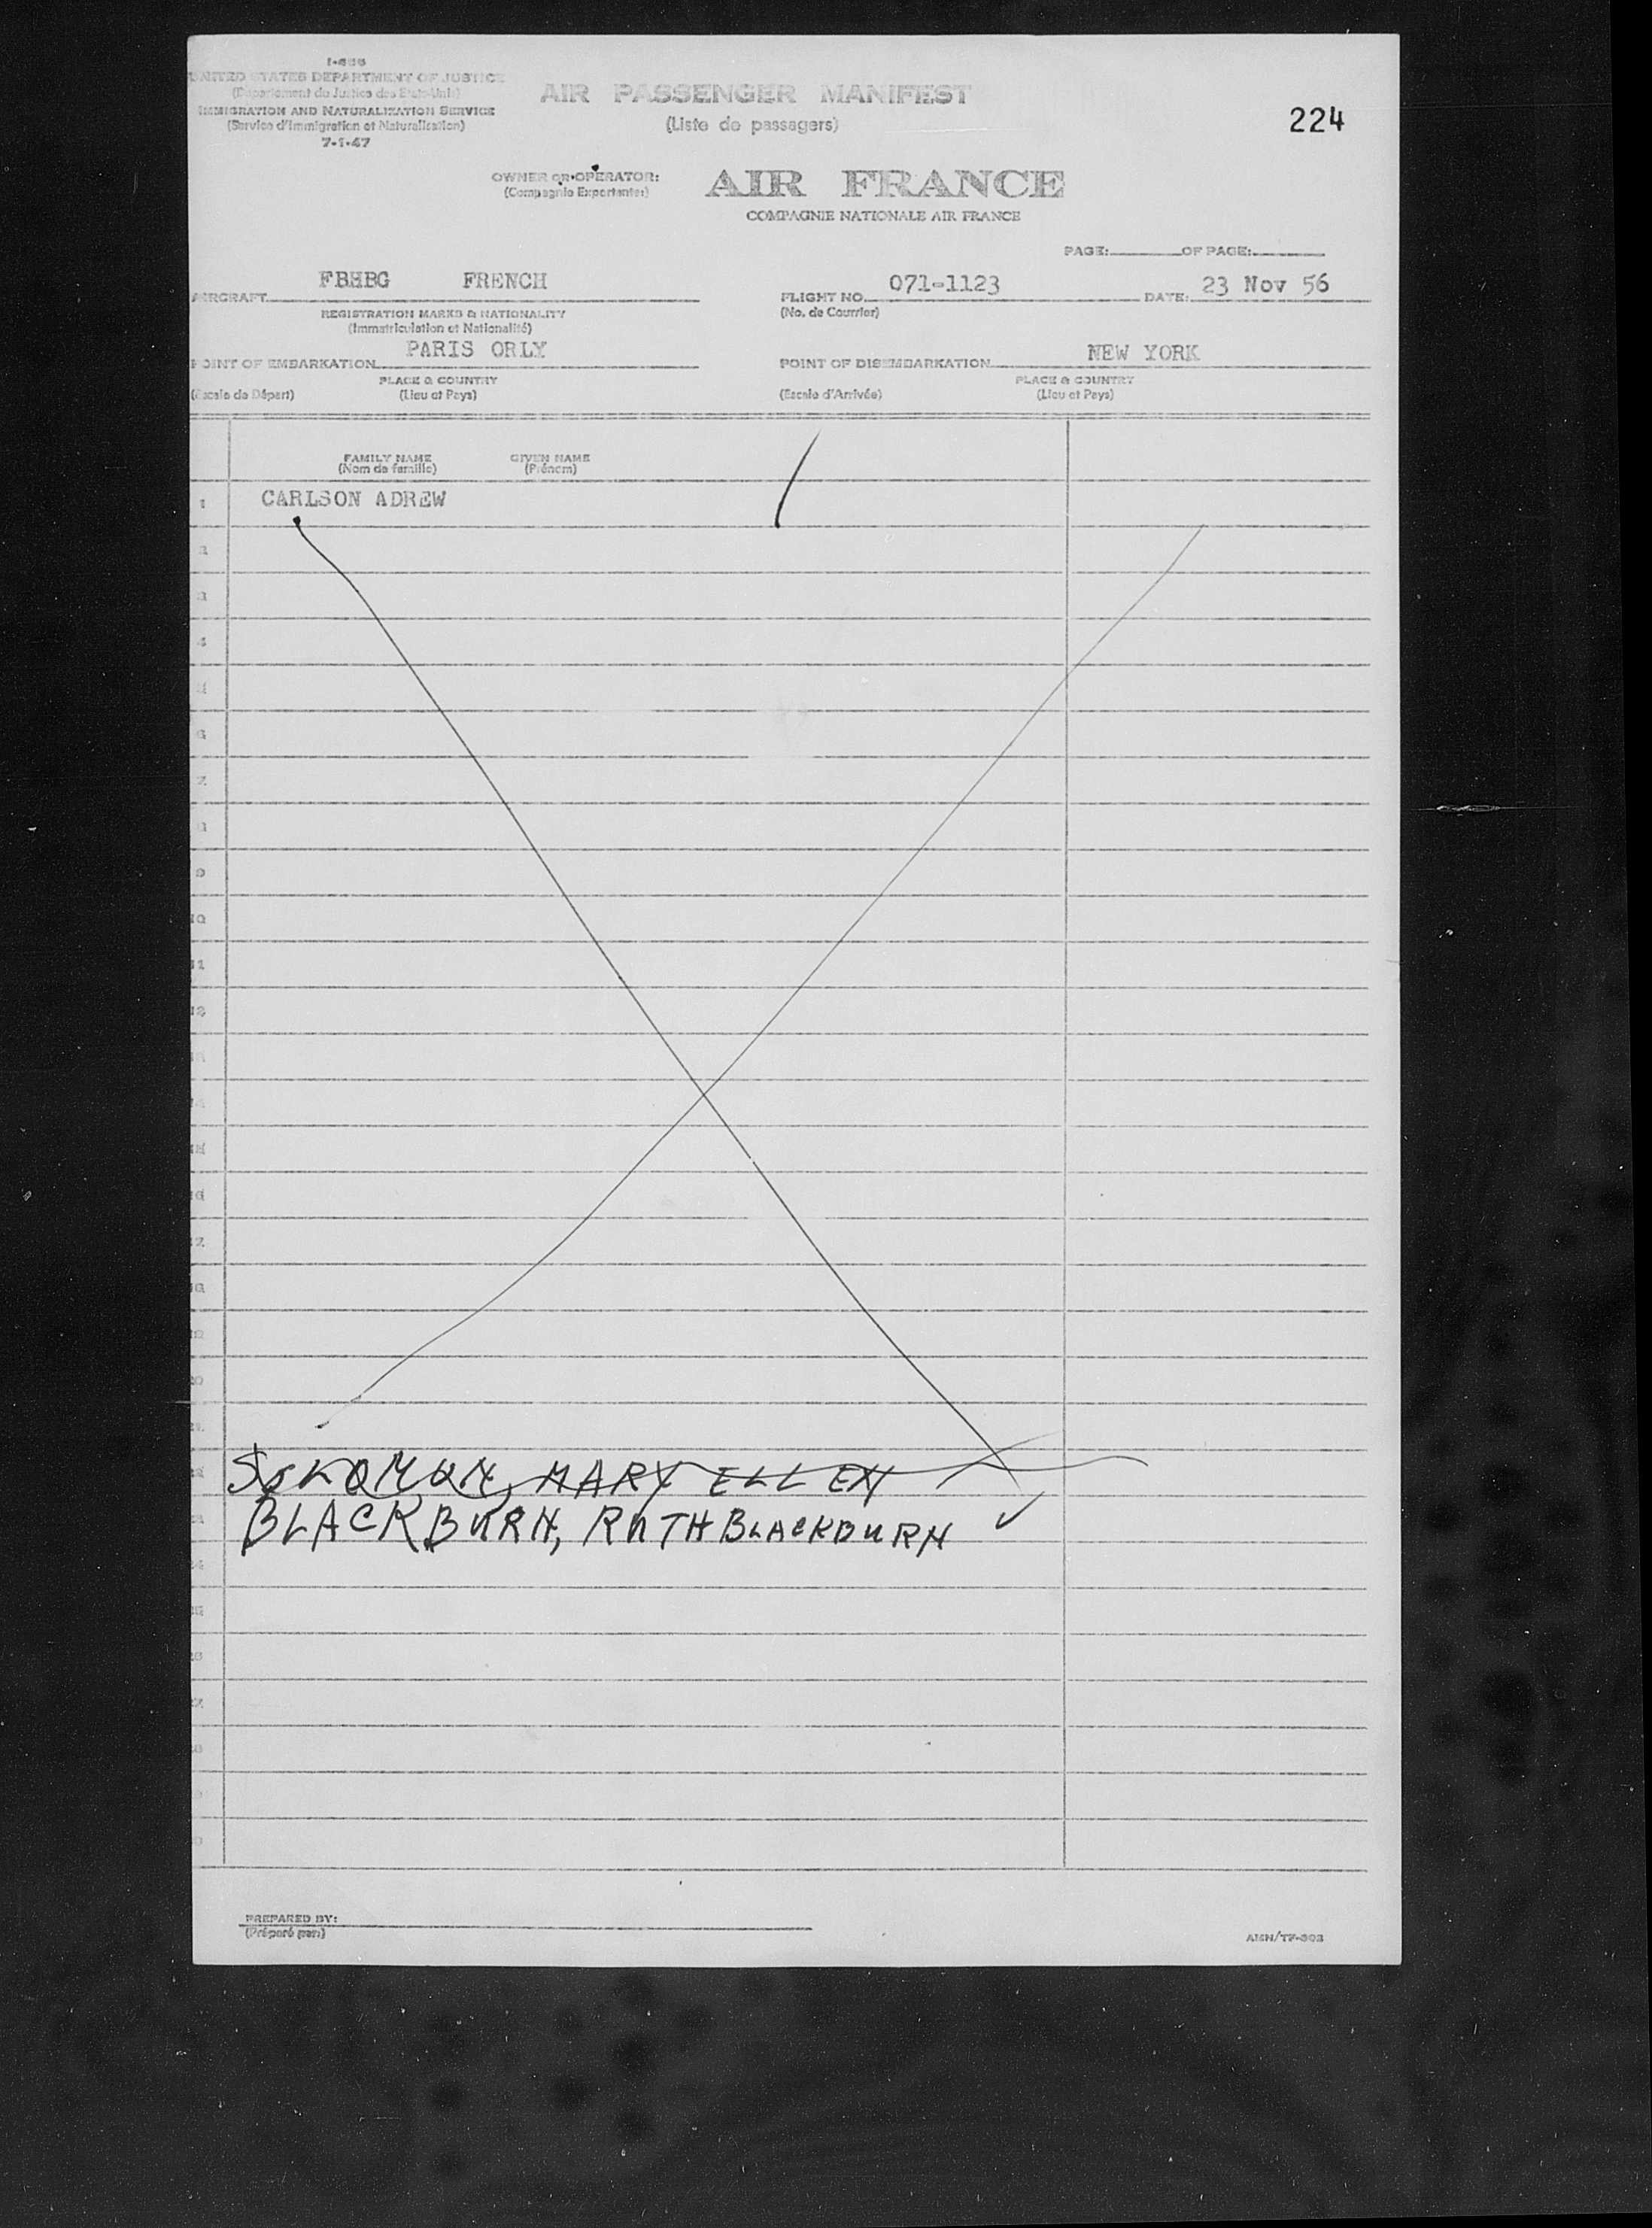 I-466
UNITED STATES DEPARTMENT OF JUSTICE
(Département du Justice des Etats-Unis)
IMMIGRATION AND NATURALIZATION SERVICE
(Service d'Immigration et Naturalisation)
7-1-47
AIR PASSENGER MANIFEST
(Liste de passagers)
224
OWNER OR OPERATOR:
(Compagnie Exportante:)
AIR FRANCE
COMPAGNIE NATIONALE AIR FRANCE
PAGE: OF PAGE:
AIRCRAFT FBHBG FRENCH
REGISTRATION MARKS & NATIONALITY
(Immatriculation et Nationalité)
FLIGHT NO. 071-1123 DATE: 23 Nov 56
(No. de Courrier)
POINT OF EMBARKATION PARIS ORLY
PLACE & COUNTRY
(Escale de Départ) (Lieu et Pays)
POINT OF DISEMBARKATION NEW YORK
PLACE & COUNTRY
(Escale d'Arrivée) (Lieu et Pays)
FAMILY NAME GIVEN NAME
(Nom de famille) (Prénom)
1 CARLSON ADREW
2
3
4
5
6
7
8
9
10
11
12
13
14
15
16
17
18
19
20
21
22 SOLOMON, MARY ELLEN
23 BLACKBURN, RUTH BLACKBURN ✓
24
25
26
27
28
29
30
PREPARED BY:
(Préparé par:)